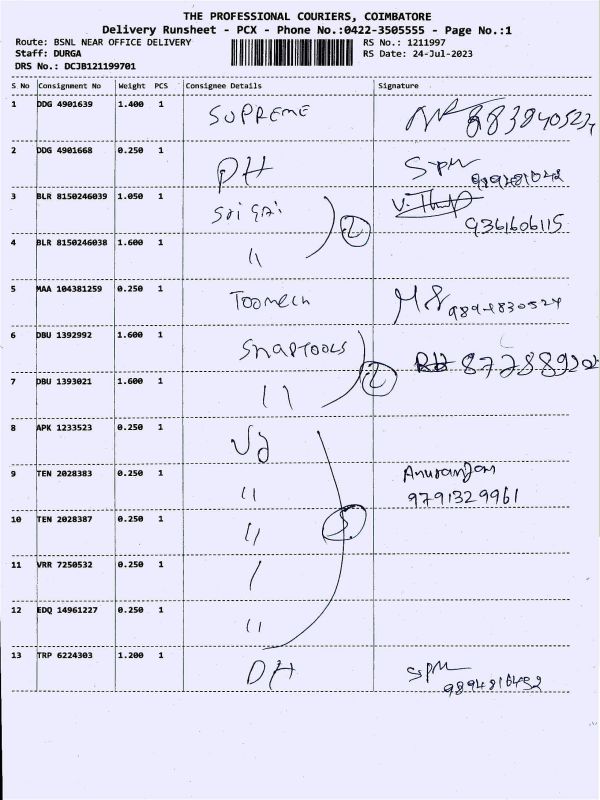 THE PROFESSIONAL COURIERS, COIMBATORE
Delivery Runsheet - PCX - Phone No.:0422-3505555 - Page No.:1
Route: BSNL NEAR OFFICE DELIVERY RS No.: 1211997
Staff: DURGA RS Date: 24-Jul-2023
DRS No.: DCJB121199701
S No Consignment No Weight PCS Consignee Details Signature
1 DDG 4901639 1.400 1 SUPREME
2 DDG 4901668 0.250 1 DH SPM
3 BLR 8150246039 1.050 1 Sai Gai
9361606115
4 BLR 8150246038 1.600 1 "
2
5 MAA 104381259 0.250 1 Toomech
6 DBU 1392992 1.600 1 SnapTools
7 DBU 1393021 1.600 1 "
2
8 APK 1233523 0.250 1 VJ
9 TEN 2028383 0.250 1 " Anuranjan
9791329961
10 TEN 2028387 0.250 1 " 5
11 VRR 7250532 0.250 1
12 EDQ 14961227 0.250 1 "
13 TRP 6224303 1.200 1 DH SPM